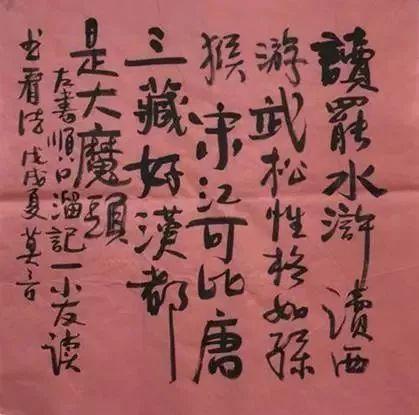 讀罷水滸讀西
游武松性格如孫
猴宋江可比唐
三藏好漢都
是大魔頭
左書順口溜記一小友读
书看法戊戌夏莫言